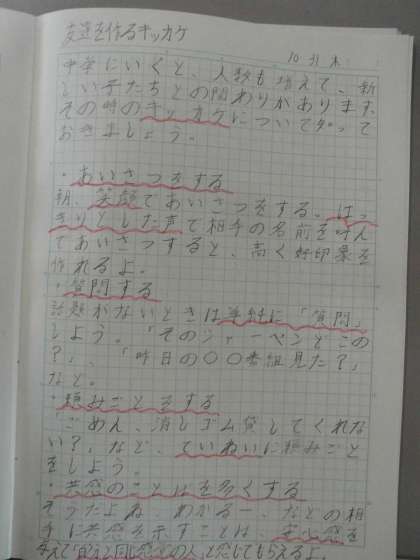 友達を作るキッカケ
10 31 木
中学にいくと、人数も増えて、新
しい子たちとの関わりがあります。
その時のキッカケについて知って
おきましょう。
・あいさつをする
朝、笑顔であいさつをする。はっ
きりとした声で相手の名前を呼ん
であいさつすると、高く好印象を
作れるよ。
・質問する
話題がないときは単純に「質問」
しよう。「そのシャーペンどこの
?」、「昨日の〇〇番組見た?」
など。
・頼みごとをする
「ごめん、消しゴム貸してくれな
い?」など、ていねいに頼みごと
をしよう。
・共感のことばを多くする
そうだよね、わかるー、などの相
手に共感を示すことは、安心感を
与えて「自分と同じ感覚の人」と感じてもらえるよ。